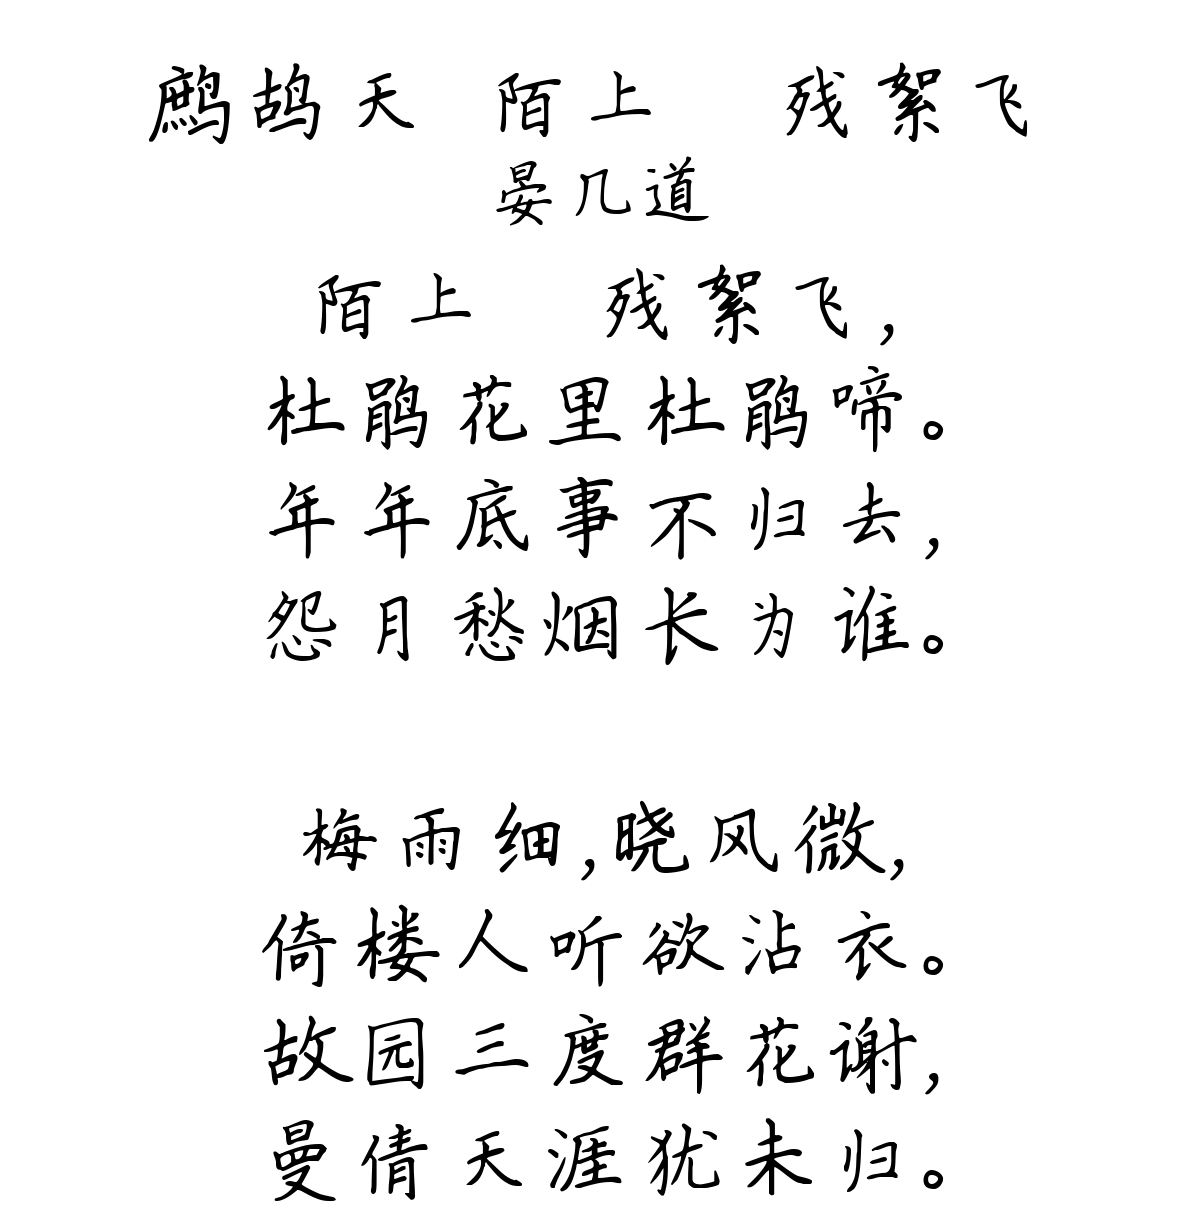 鹧鸪天 陌上 残絮飞
晏几道
陌上 残絮飞,
杜鹃花里杜鹃啼。
年年底事不归去,
怨月愁烟长为谁。
梅雨细,晓风微,
倚楼人听欲沾衣。
故园三度群花谢,
曼倩天涯犹未归。